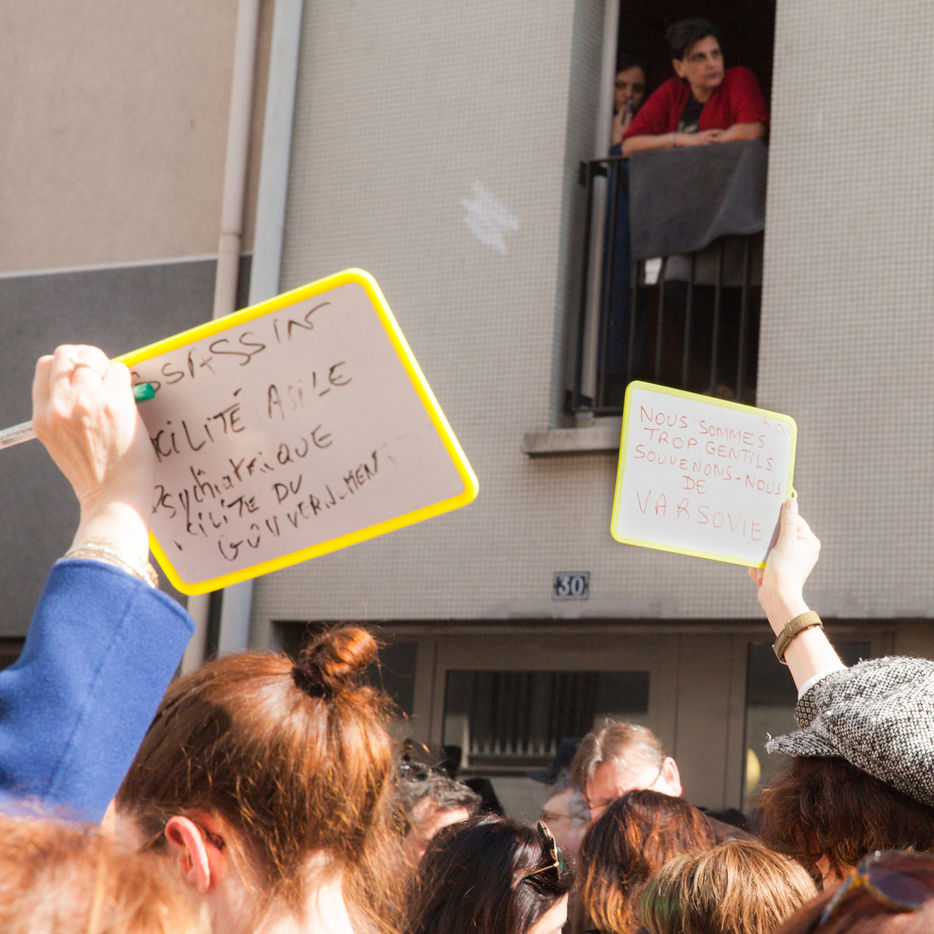 ASSASSIN
CILITÉ ASILE
PsychiatriQUE
CILITE DU
GOUVERNEMENT
NOUS SOMMES
TROP GENTILS
SOUVENONS-NOUS
DE
VARSOVIE
30